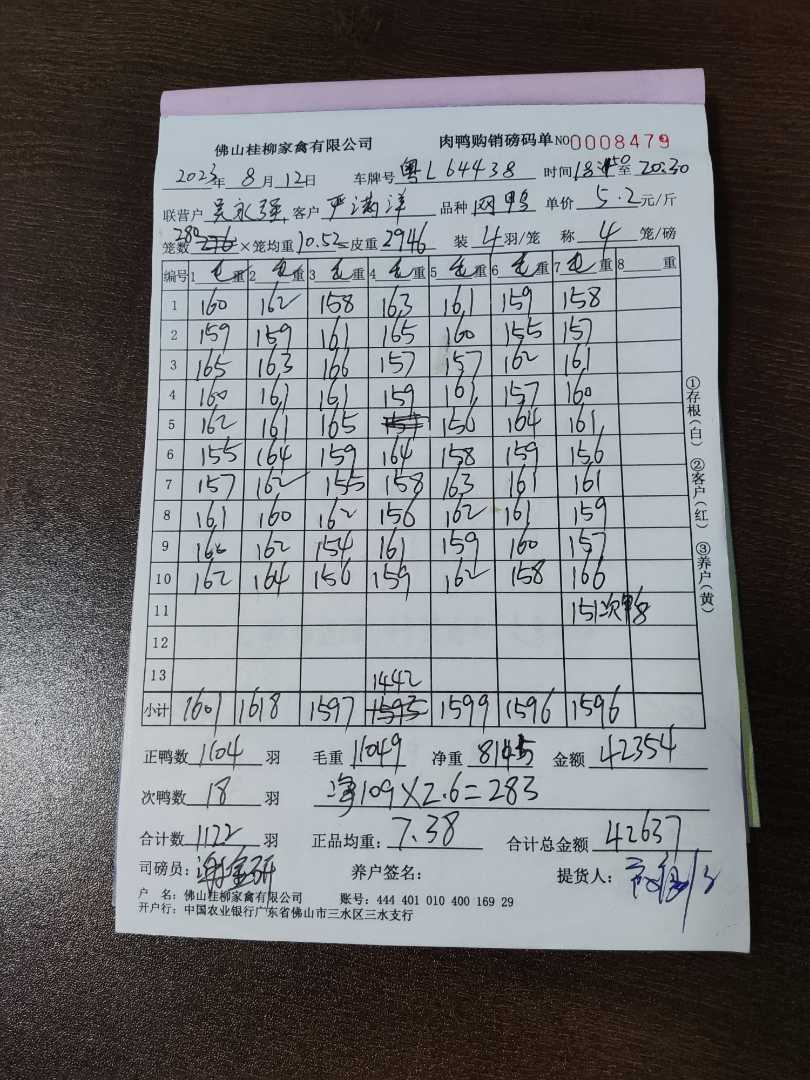 佛山桂柳家禽有限公司 肉鸭购销磅码单 NO 0008479
2023年 8月 12日 车牌号 粤L64438 时间 至 20:30
联营户 吴永强 客户 严满洋 品种 网鸭 单价 5.2 元/斤
笼数 280 × 笼均重 10.52 = 皮重 2946 装 4 羽/笼 称 4 笼/磅
编号 1 毛重 2 毛重 3 毛重 4 毛重 5 毛重 6 毛重 7 毛重 8 重
1 160 162 158 163 161 159 158
2 159 159 161 165 160 155 157
3 165 163 166 157 157 162 161
4 160 161 161 159 161 157 160
5 162 161 165 156 164 161
6 155 164 159 164 158 159 156
7 157 162 155 158 163 161 161
8 161 160 162 156 162 161 159
9 160 162 154 161 159 160 157
10 162 164 156 159 162 158 166
11 151次鸭
12
13 1442
小计 1601 1618 1597 1599 1596 1596
正鸭数 1104 羽 毛重 11049 净重 金额 42354
次鸭数 18 羽 净109×2.6=283
合计数 1122 羽 正品均重: 7.38 合计总金额 42637
司磅员: 养户签名: 提货人:
户 名: 佛山桂柳家禽有限公司 账号: 444 401 010 400 169 29
开户行: 中国农业银行广东省佛山市三水区三水支行
①存根(白) ②客户(红) ③养户(黄)